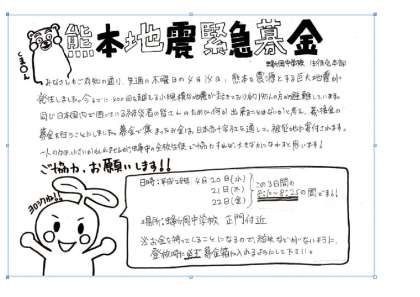 くまモン
熊本地震緊急募金
蜂ヶ岡中学校 生徒会本部
みなさんもご存知の通り、先週の木曜日の4月14日、熊本を震源とする巨大地震が
発生しました。今までに400回を超える小規模な地震が起き
同じ日本国内で困っている被災者の皆さんのために何か出来ることはないかと考え、義援金の
募金を行うことにしました。募金で集まったお金は、日本赤十字社を通して、被災地に寄付されます。
一人の力は小さいかもしれませんが、蜂中の全校生徒で協力すれば、大きな力になれると思います！
ご協力、お願いします!!
ヨロシクね!!
日時：平成28年 4月 20日(水)
21日(木)
22日(金)
この3日間の
8:10〜8:25の間です!!
場所：蜂ヶ岡中学校 正門付近
※お金を持ってくることになるので、紛失などがないように、
登校時に必ず募金箱に入れるようにして下さい。